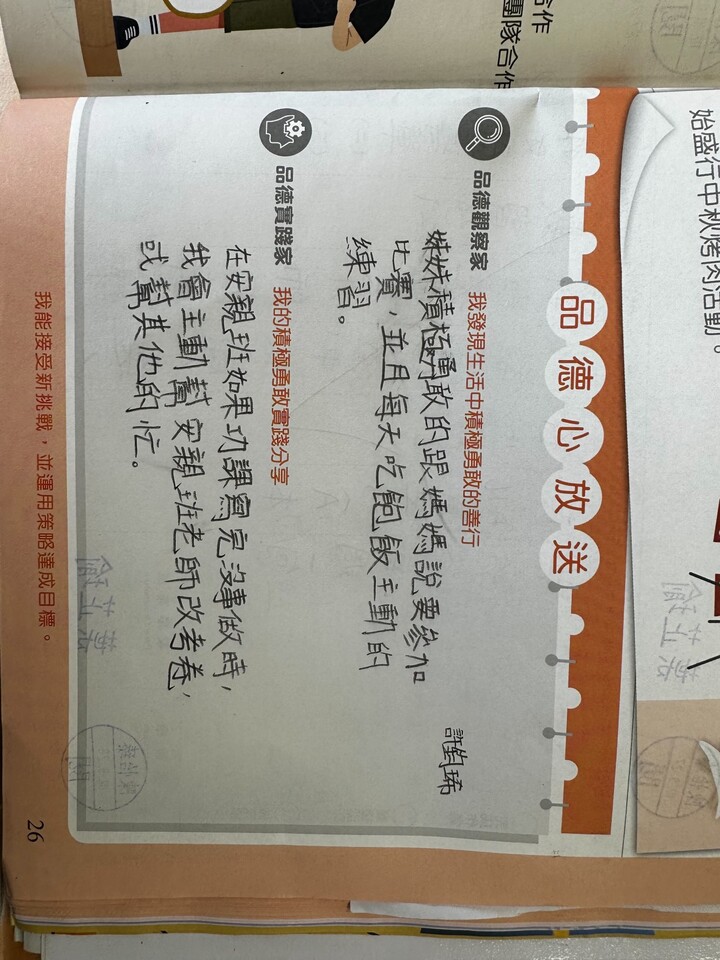 合作
團隊合作
始盛行中秋烤肉活動。
品德心放送
品德觀察家 我發現生活中積極勇敢的善行
姊妹積極勇敢的跟媽媽說要參加
比賽，並且每天吃飽飯主動的
練習。
品德實踐家 我的積極勇敢實踐分享
在安親班如果功課寫完沒事做時，
我會主動幫安親班老師改考卷，
或幫其他的忙。
我能接受新挑戰，並運用策略達成目標。
26